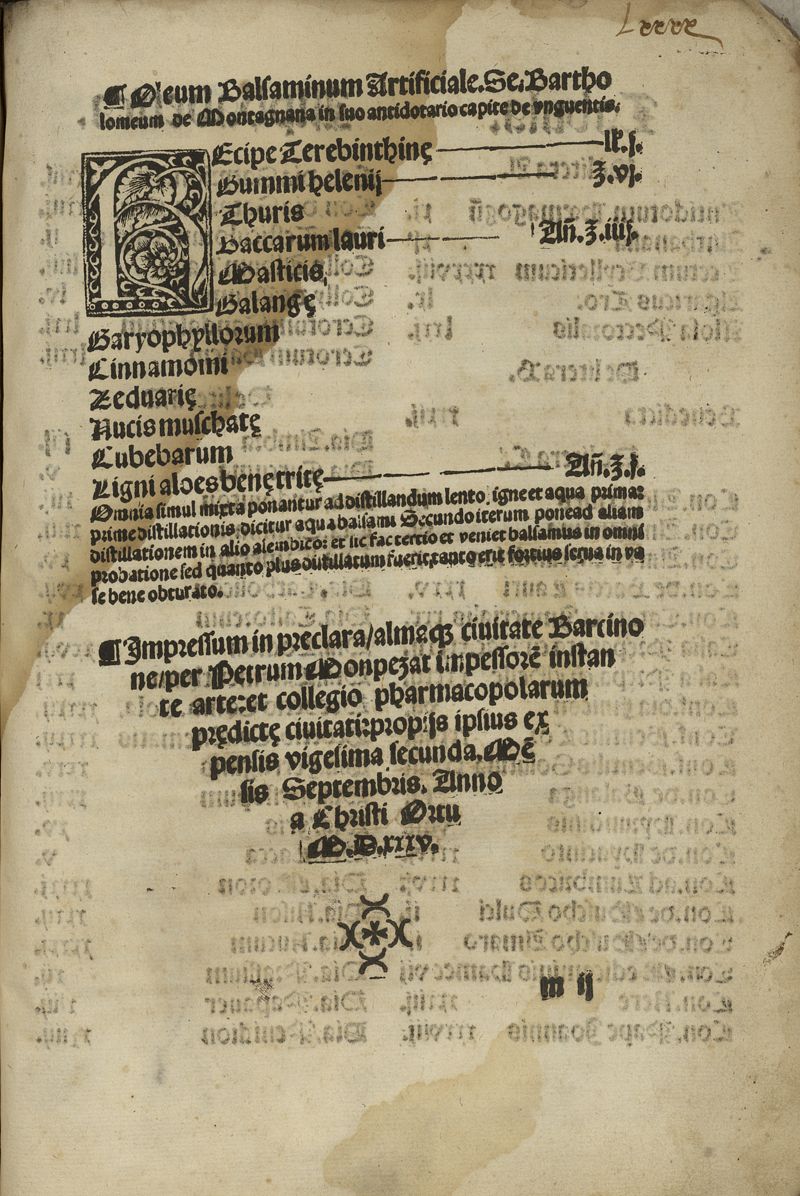 Lxxxx
¶ Oleum Balsaminum Artificiale. Se. Bartho
lomeum de Montagnana in suo antidotario capite de vnguentis.
REcipe Terebinthinę lib. s.
Gummi helenij ʒ. vj.
Thuris
Baccarum lauri Añ. ʒ. iiij.
Masticis,
Galangę
Garyophyllorum
Cinnamomi
Zeduarię
Nucis muschatę
Cubebarum
Ligni aloes benę tritę Añ. ʒ. j.
Omnia simul mixta ponantur ad distillandum lento, igne et aqua primaz
prime distillationis, dicitur aqua balsami Secundo iterum pone ad aliam
distillationem in alio alembico: et sic fac tertio et veniet balsamus in omni
probatione sed quanto plus distillatum fuerit, tanto erit fortius serua in va
se bene obturato.
¶ Impressum in pręclara/almaqꝫ ciuitate Barcino
ne/per Petrum Monpezat impessorē instan
te arte: et collegio pharmacopolarum
prędictę ciuitati: proprijs ipsius ex
pensis vigesima secunda. Mē
sis Septembris. Anno
a Christi Ortu
M.D.xxxv.
m ij